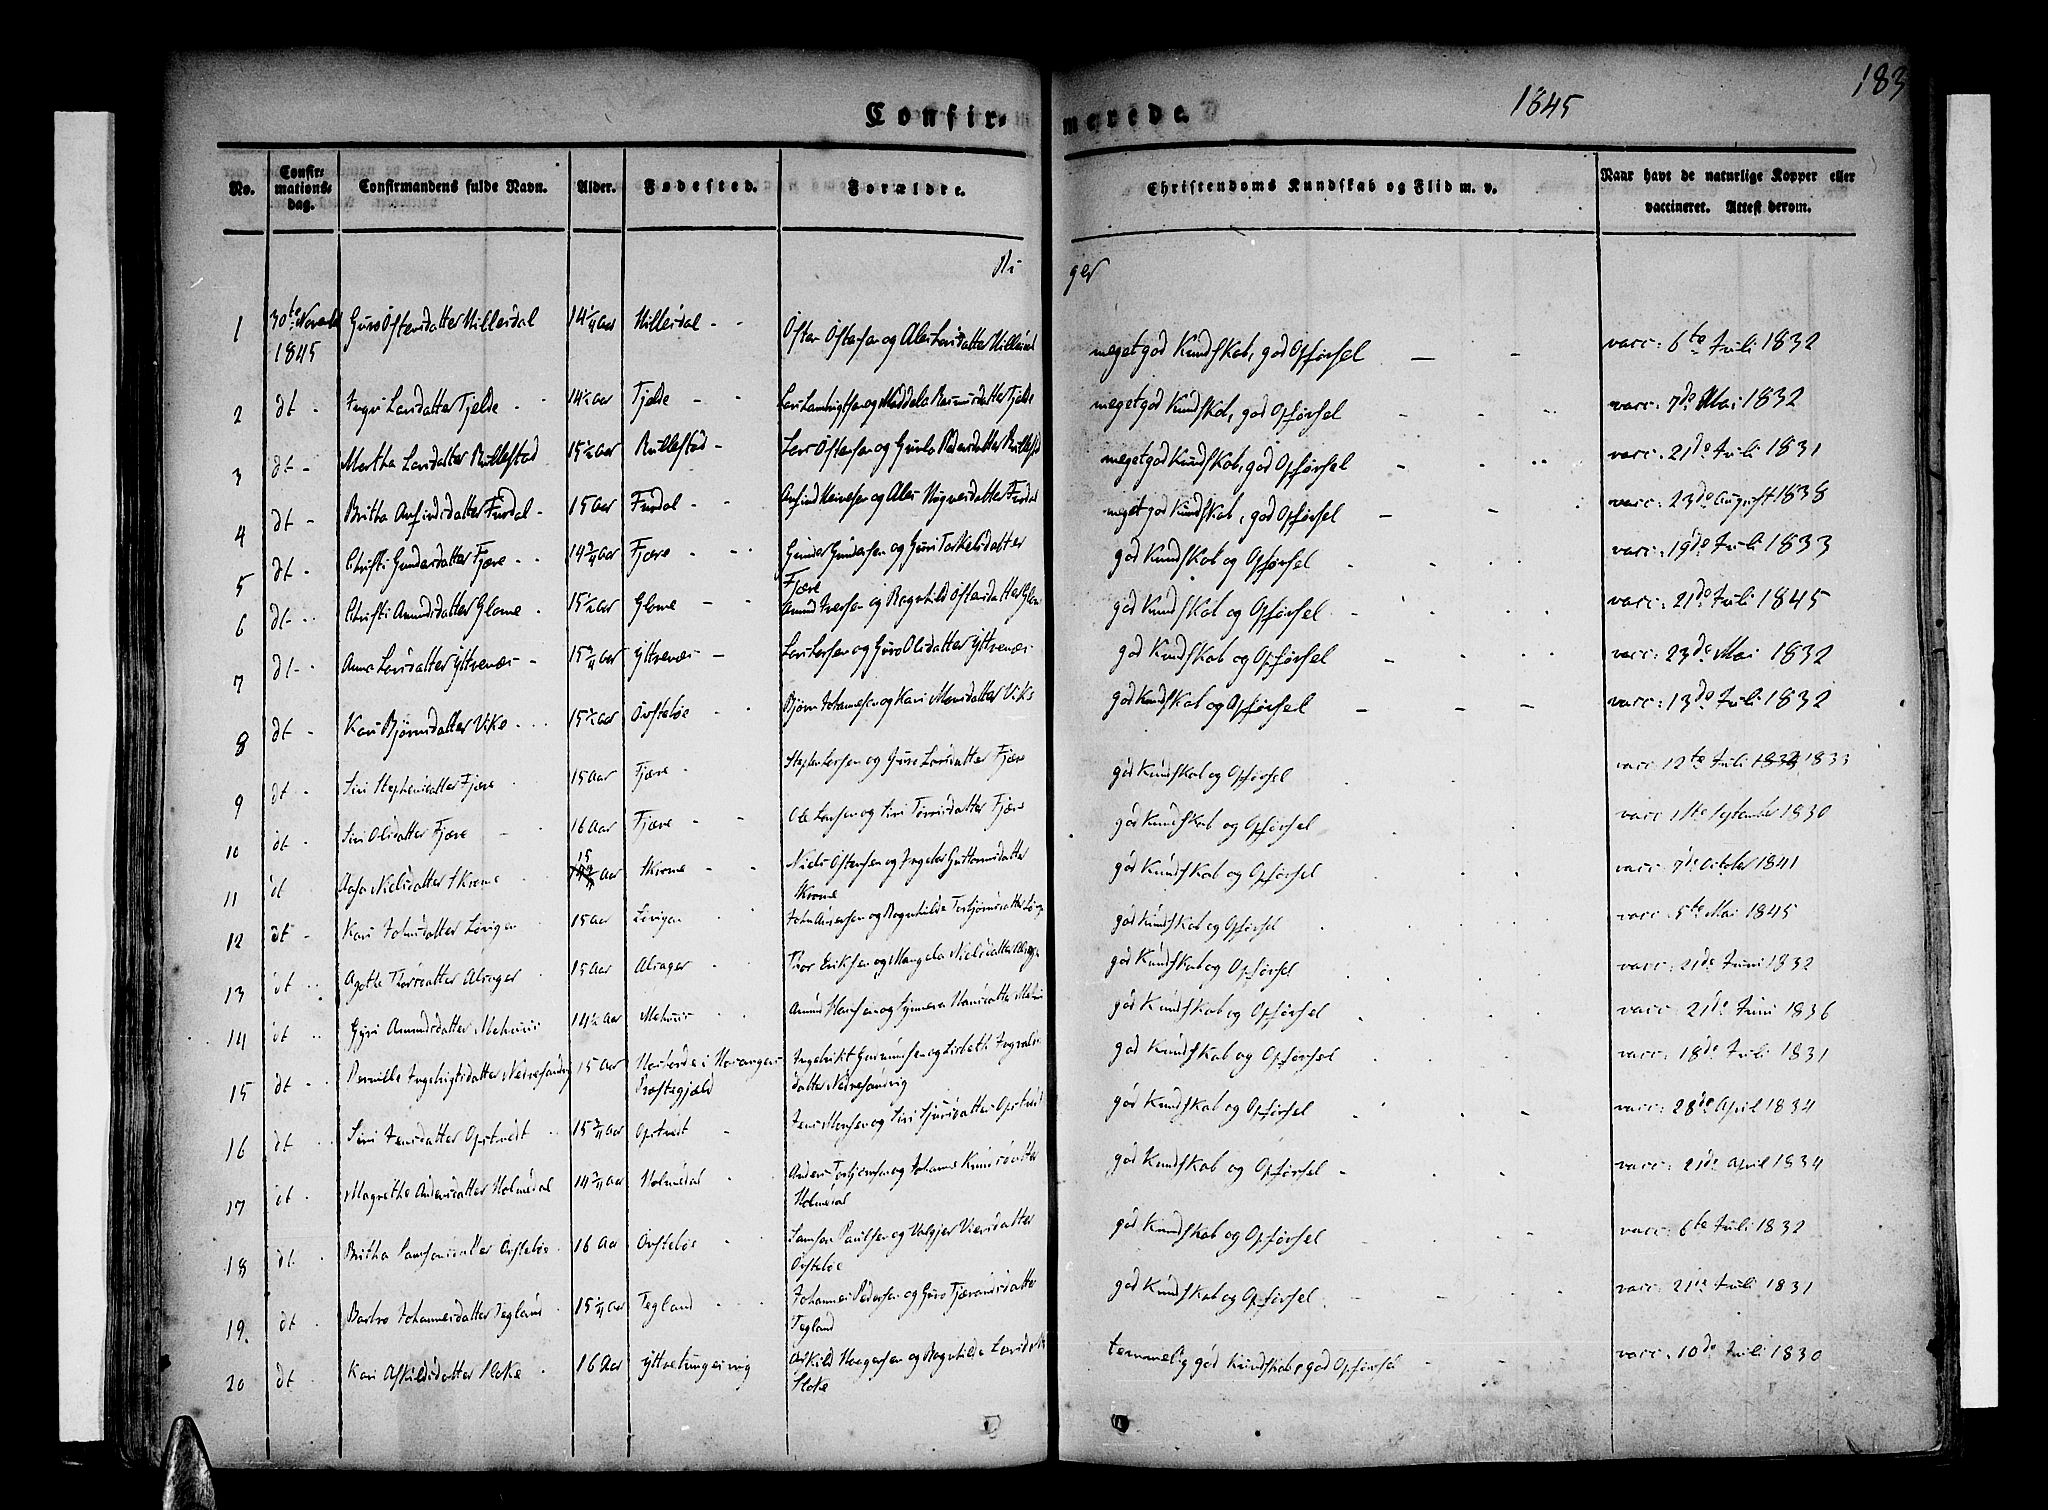 183
1845
Confirmerede.
No. | Confirmationsdag. | Confirmandens fulde Navn. | Alder. | Fødested. | Forældre. | Christendoms Kundskab og Flid m. v. | Naar havt de naturlige Kopper eller vaccineret. Attest derom.
Piger
1 | 30te Novemb 1845 | Guro Ostensdatter Hillesdal | Aar | Hillesdal | Osten Ostensen og | meget god Kundskab, god Opførsel | vacc: 6te Juli 1832
2 | dt | Larsdatter Tjelde | 14½ Aar | Tjelde | Tjelde | meget god Kundskab, god Opførsel | vacc: 7de Mai 1832
3 | dt | Martha Larsdatter Rullestad | 15½ Aar | Rullestad | Lars Ostensen og Pedersdatter | meget god Kundskab, god Opførsel | vacc: 21de Juli 1831
4 | dt | Britha Anfindsdatter Furdal | 15 Aar | Furdal | Anfind og Furdal | meget god Kundskab, god Opførsel | vacc: 23de August 1838
5 | dt | Christi Gundersdatter Fjære | Aar | Fjære | Gunder Gundersen og Guri Torkelsdatter Fjære | god Kundskab og Opførsel | vacc: 19de Juli 1833
6 | dt | Christi Amundsdatter Glame | 15½ Aar | Glame | Amund Iversen og Ragnhild Ostensdatter | god Kundskab og Opførsel | vacc: 21de Juli 1845
7 | dt | Anna Larsdatter Yttrenæs | Aar | Yttrenæs | Lars Larsen og Guro Olsdatter Yttrenæs | god Kundskab og Opførsel | vacc: 23de Mai 1832
8 | dt | Kari Bjørnsdatter Vike | 15½ Aar | Østebøe | Bjørn Johannesen og Kari Monsdatter Vike | god Kundskab og Opførsel | vacc: 13de Juli 1832
9 | dt | Siri Stephensdatter Fjære | 15 Aar | Fjære | Stephen Larsen og Guro Larsdatter Fjære | god Kundskab og Opførsel | vacc: 12te Juli 1833
10 | dt | Siri Olsdatter Fjære | 16 Aar | Fjære | Ole Larsen og Siri Fjære | god Kundskab og Opførsel | vacc 1ste September 1830
11 | dt | Aasa Nielsdatter Skrome | 15 Aar | Skrome | Niels Ostensen og Guttormsdatter Skrome | god Kundskab og Opførsel | vacc: 7de October 1841
12 | dt | Kari Johnsdatter Løvigen | 15 Aar | Løvigen | John Andersen og Ragnhilde Torbjørnsdatter | god Kundskab og Opførsel | vacc: 5te Mai 1845
13 | dt | Agatha Thorsdatter Alsager | 15 Aar | Alsager | Thor Eriksen og Mangela Nielsdatter | god Kundskab og Opførsel | vacc: 21de Juni 1832
14 | dt | Gyri Amundsdatter Mehuus | 14½ Aar | Mehuus | Amund Hansen og Synneva Hansdatter | god Kundskab og Opførsel | vacc: 21de Juni 1836
15 | dt | Pernille Ingebrigtsdatter Nedresandvig | 15 Aar | i Præstegjæld | Ingebrikt og Lisbeth datter Nedresandvig | god Kundskab og Opførsel | vacc: 18de Juli 1831
16 | dt | Siri Jensdatter Opstvedt | Aar | Opstvedt | Jens Monsen og Siri Sjursdatter Opstvedt | god Kundskab og Opførsel | vacc: 28de April 1834
17 | dt | Magrethe Andersdatter Holmedal | Aar | Holmedal | Anders Torbjørnsen og Johanna Knudsdatter Holmedal | god Kundskab og Opførsel | vacc: 21de April 1834
18 | dt | Britha Samsonsdatter Østebøe | 16 Aar | Østebøe | Samson Paulsen og Valgjer Østebøe | god Kundskab og Opførsel | vacc: 6te Juli 1832
19. | dt | Barbro Johannesdatter Tegland | Aar | Tegland | Johannes Pedersen og Guro Tjærandsdatter Tegland | god Kundskab og Opførsel | vacc: 21de Juli 1831
20 | dt | Kari Askildsdatter Floke | 16 Aar | Yttretungesvig | Askild Haagensen og Ragnhilde Larsdatter Floke | temmelig god Kundskab, god Opførsel | vacc. 10de Juli 1830